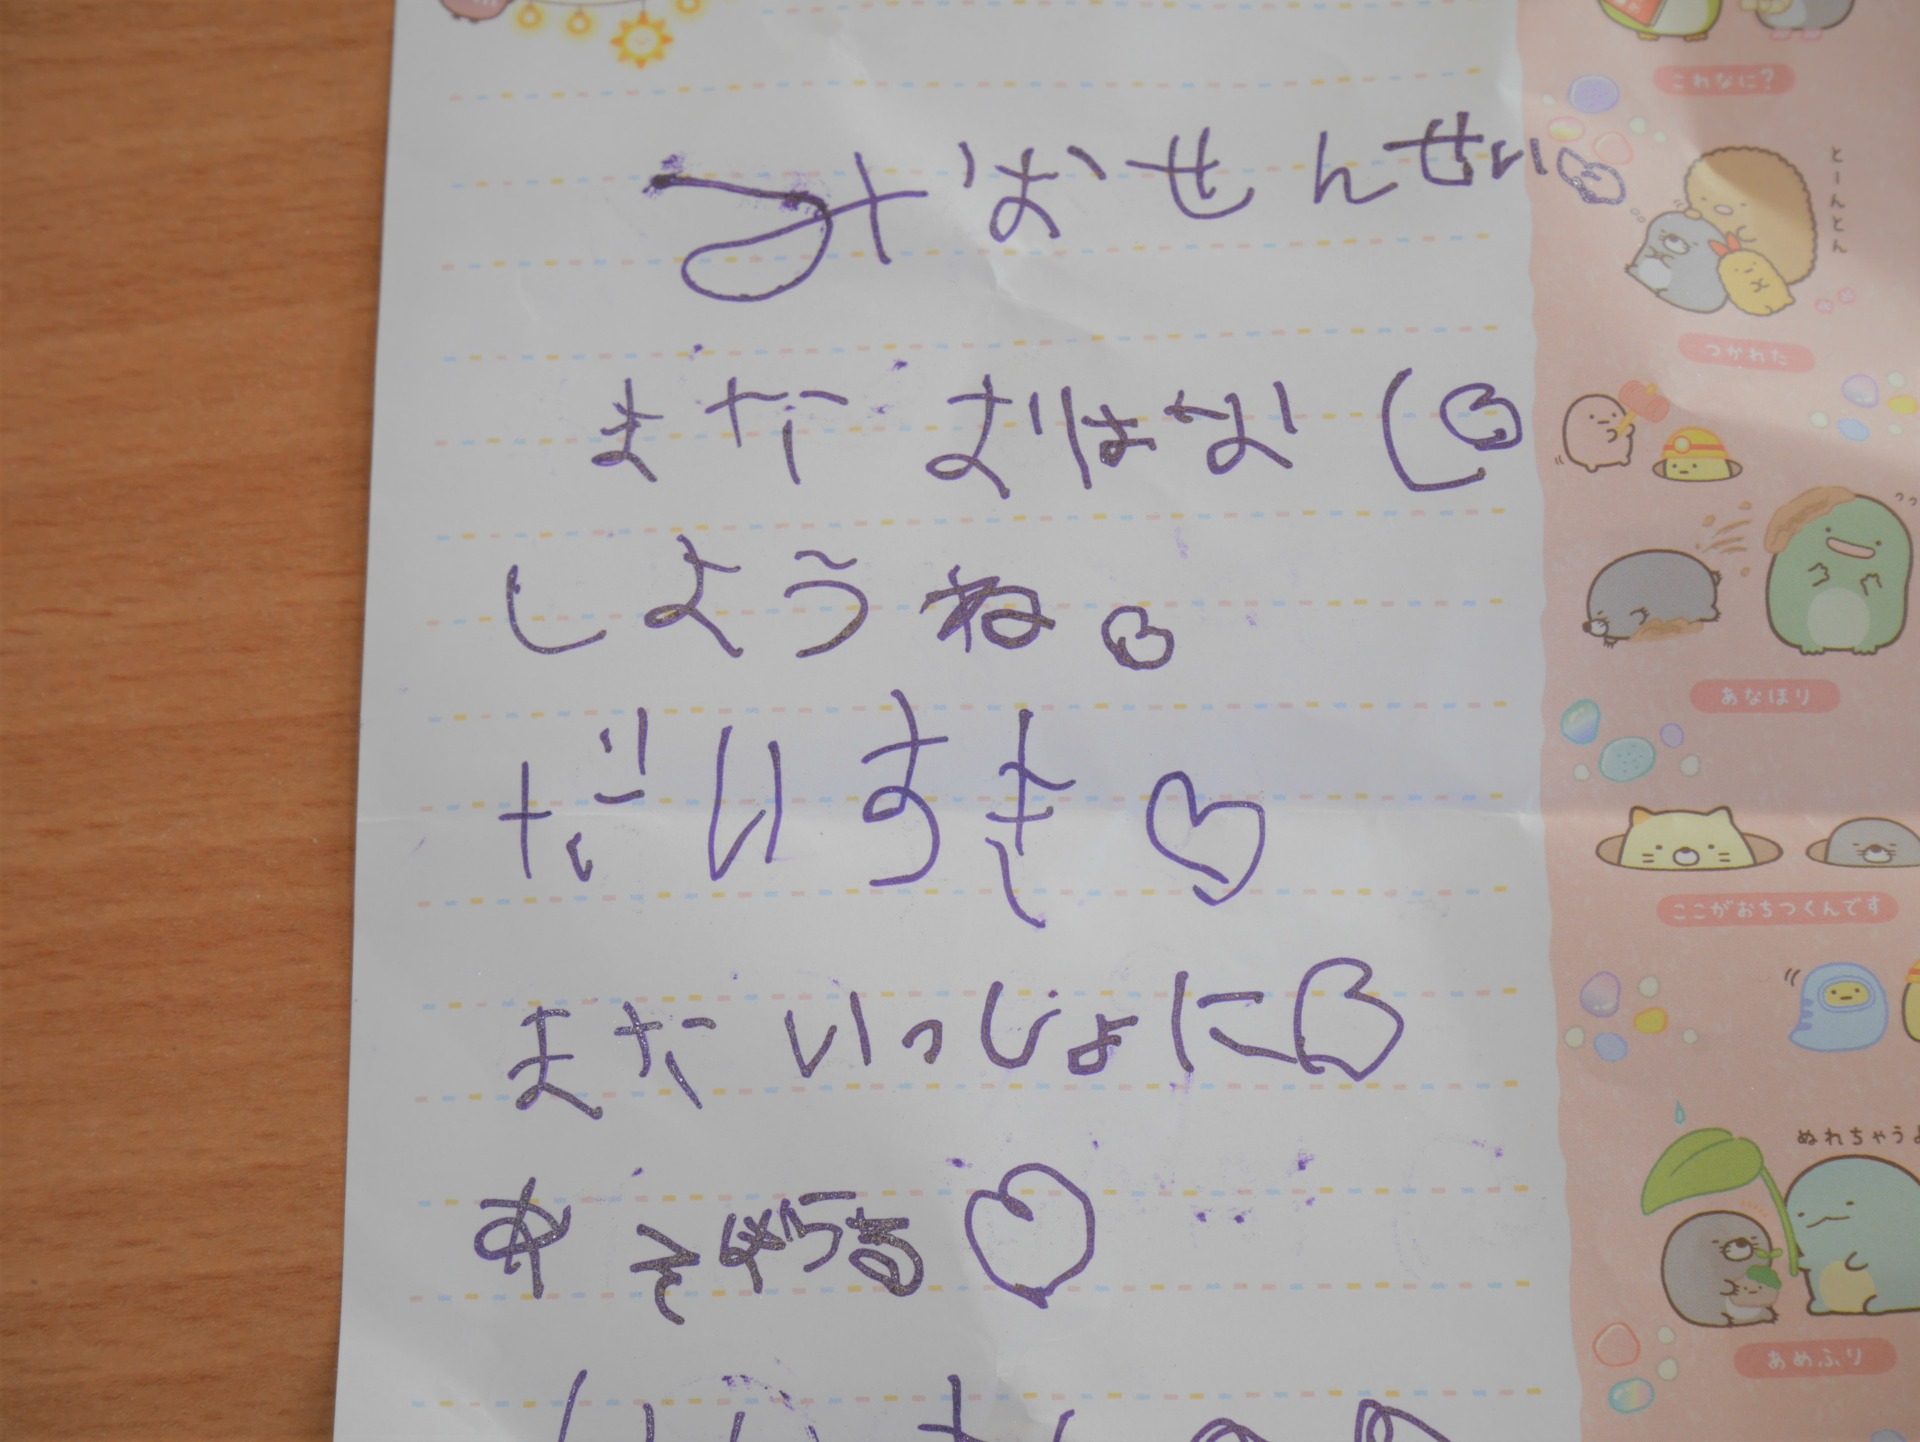 みなせんせい
また おはなし
しようね。
だいすき♡
また いっしょに♡
あそぼうる♡
これなに?
とーんとん
つかれた
あなほり
ここがおちつくんです
ぬれちゃうよ
あめふり